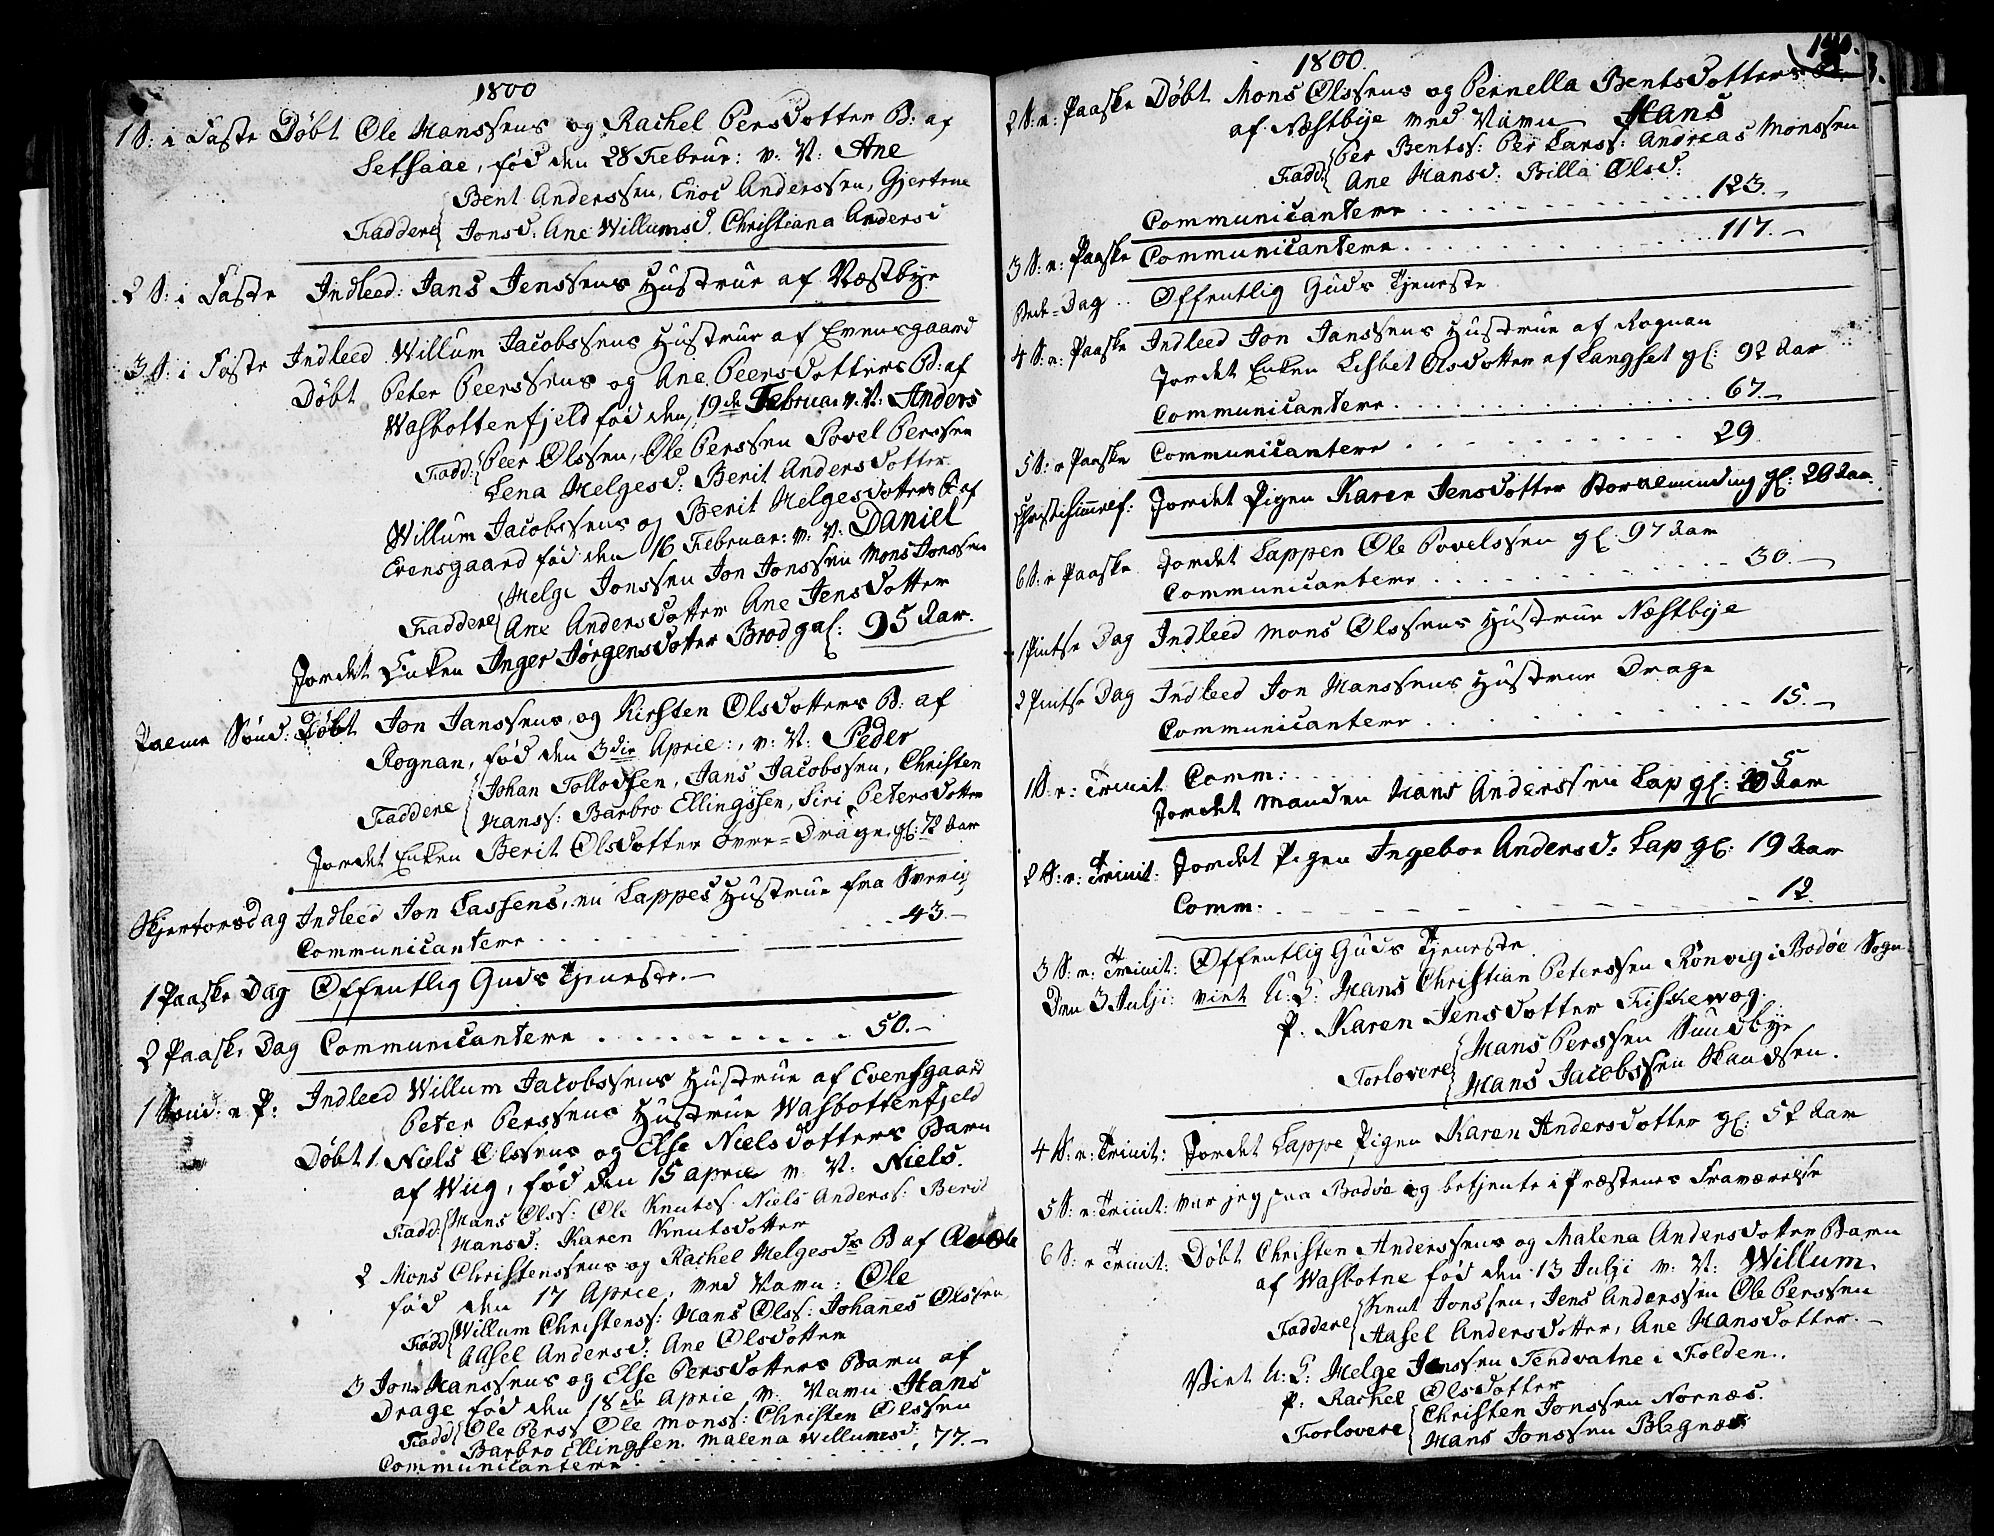 1800
1 S: i Faste Døbt Ole Hanssens og Rachel Persdotter B: af
Setsaae, fød den 28 Februr: v. N: Ane
Bent Anderssen, Enoc Anderssen, Gjertrue
Faddere Jonsd: Ane Willumsd. Christiana Andersd
2 S: i Faste Indleed: Jans Jenssens Hustrue af Næstbye
3 S: i Faste Indleed Willum Jacobssens Hustrue af Evensgaard
Døbt Peter Peerssens og Ane Peersdotters B: af
Wasbottenfjeld fød den 19de Februar v. N: Anders
Fadd: Peer Olssen, Ole Perssen Povel Perssen
Lena Helgesd: Berit Andersdotter
Willum Jacobssens og Berit Helgesdotters B. af
Evensgaard fød den 16 Februar: v. N: Daniel
Helge Jonssen Jon Jonssen Mons Jonssen
Faddere Ane Andersdotter Ane Jensdotter
Jordet Enken Inger Jørgensdotter Brodgal: 95 Aar.
Palme Sønd: Døbt Jon Janssens og Kirsten Olsdotters B: af
Rognan, fød den 3die Aprie:, v: N: Peder
Johan Tollodsen, Jans Jacobssen, Christen
Faddere Hanss: Barbro Ellingssen, Siri Petersdotter
Jordet Enken Berit Olsdotter Øvre=Drage. gl: 72 Aar
Skjertorsdag Indleed Jon Lassens, en Lappes Hustrue fra Sverig
Communicantere . . . . . 43.-
1 Paaske Dag Offentlig Guds Tjeneste.-
2 Paaske Dag Communicantere . . . . . . . . . 50.-
1 Sønd: e P: Indleed Willum Jacobssens Hustrue af Evensgaard
Peter Perssens Hustrue Wasbottenfjeld
Døbt 1. Niels Olssens og Else Nielsdotters Barn
af Wiig, fød den 15 aprie v. N: Niels.
Fadd: Hans Olss: Ole Knutss Niels Anderss: Berit
Hansd: Karen Knutsdotter
2 Mons Christenssens og Rachel Helgesds B af
fød den 17 Aprie, med Navn: Ole
Fadd Willum Christenss: Hans Olss: Johanes Olssen
Aasel Andersd: Ane Olsdotter
3 Jon Hanssens og Else Persdotters Barn af
Drage fød den 18de Aprie v. Navn Hans
Fadd Ole Perss Ole Monss: Christen Olssen
Barbro Ellingsen. Malena Willumsd:
Communicantere . . . . . . . 77.-
1800.
2 S: e: Paaske Døbt Mons Olssens og Pernella Bentsdotters B:
af Næstbye med Navn Hans
Fadd: Per Bentss: Per Larss: Andreas Monssen
Ane Hansd: Billa Olsd:
Communicantere . . . . . . . . . . 123.-
3 S: e: Paaske Communicantere . . . . . . . . . . 117.-
Bede=Dag .. Offentlig Guds Tjeneste
4 S: e: Paaske Indleed Jon Janssens Hustrue af Rognan
Jordet Enken Lisbet Olsdotter af Langset gl: 92 Aar
Communicantere . . . . . . . . . . 67.-
5 S: e Paaske Communicantere . . . . . . . . . . 29.
Christi Himmelf: Jordet Pigen Karen Jensdotter gl: 28 Aar.
6 S: e Paaske Jordet Lappen Ole Povelssen gl. 97 Aar
Communicantere . . . . . . . . . . 30.-
1 Pintse Dag Indleed Mons Olssens Hustrue Næstbye
2 Pintse Dag Indleed Jon Hanssens Hustrue Drage
Communicantere . . . . . . . . . . 15.-
1 S: e: Trinit Comm: . . . . . . . . . . 5
Jordet Manden Hans Anderssen Lap gl: Aar
2 S: e: Trinit: Jordet Pigen Ingebor Andersd: Lap gl: 19 Aar
Comm. . . . . . . . . . . 12.
3 S: e: Trinit: Offentlig Guds Tjeneste
Den 3 Julji: viet U: K: Hans Christian Peterssen Rønvig i Bodøe Sogn
P. Karen Jensdotter Fiskevog.
Forlovere Hans Perssen Sundbye
Hans Jacobssen Skandsen.
4 S: e: Trinit: Jordet Lappe Pigen Karen Andersdotter gl: 52 Aar
5 S: e: Trinit: var jeg paa Bodøe og betjente i Præstens Fraværelse
6 S: e Trinit: Døbt Christen Anderssens og Malena Andersdotter Barn
af Wasbotne fød den 13 Julji v. N: Willum.
Faddere Knut Jonssen, Jens Anderssen Ole Perssen
Aasel Andersdotter, Ane Hansdotter.-
Viet U: K: Helge Jonssen Tendvatne i Folden.
P. Rachel Olsdotter
Forlovere Christen Jonssen Nornæs.
Hans Jonssen Blegnæs